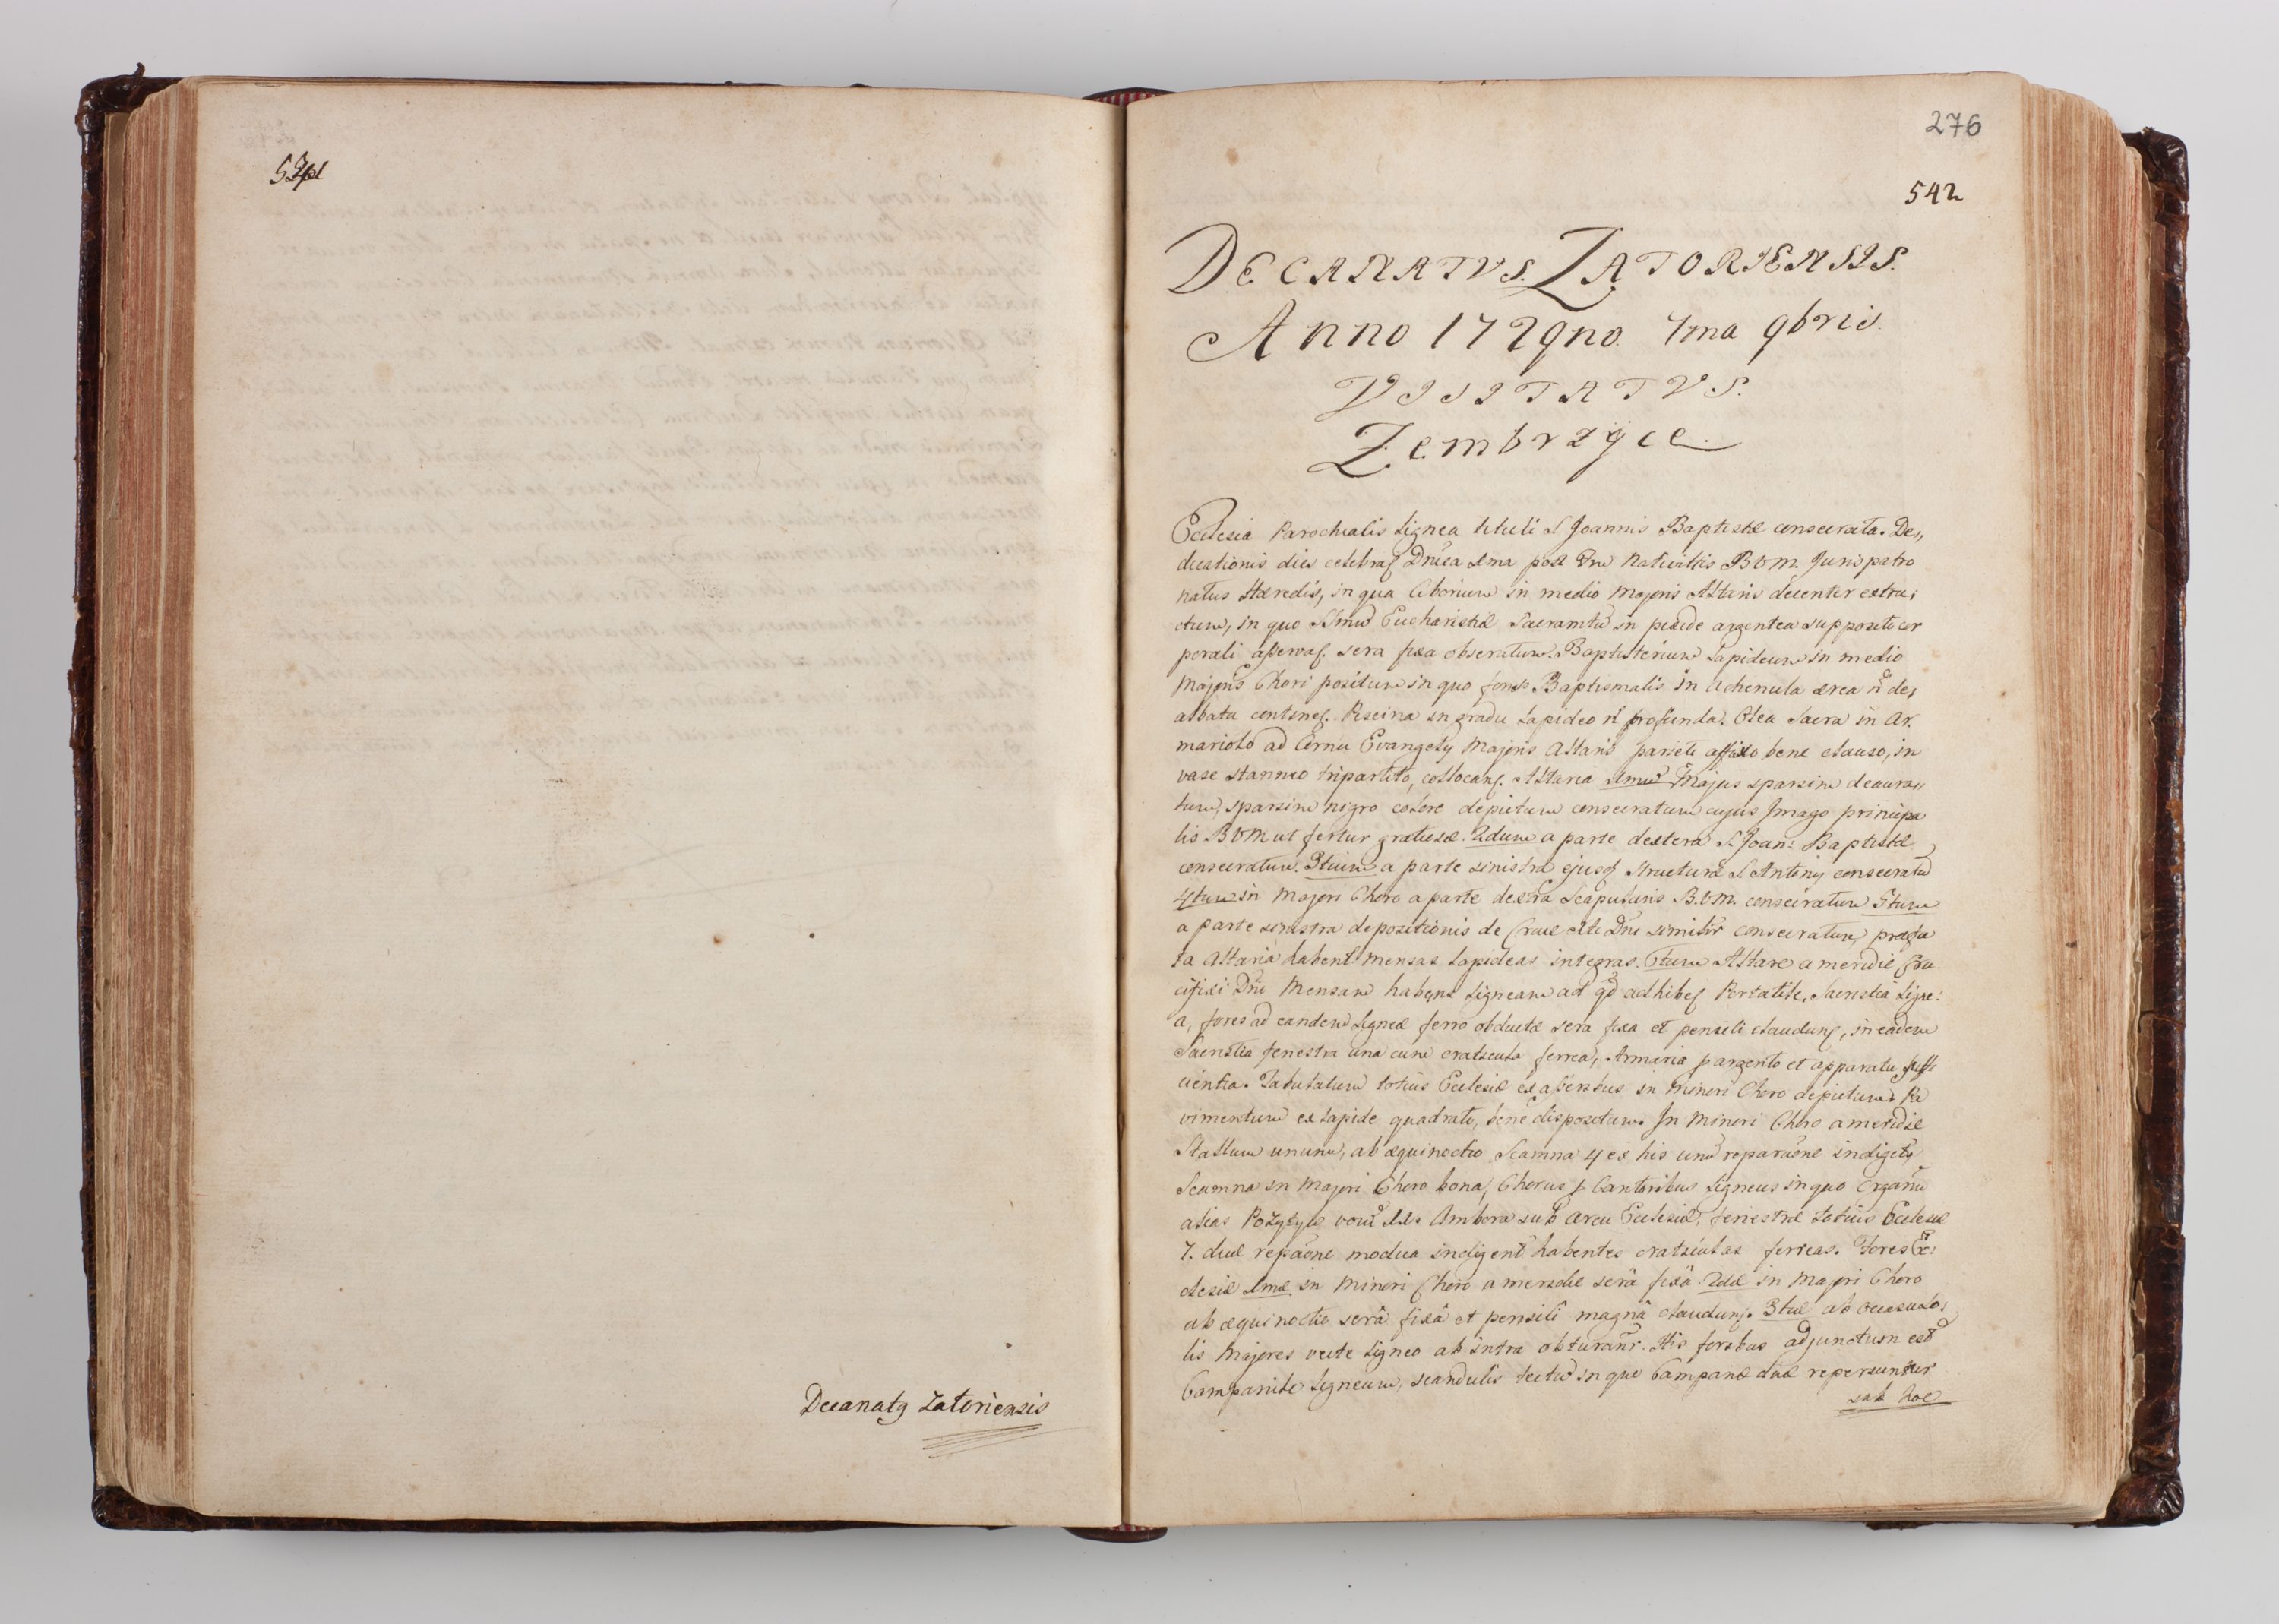 Decanatg Zatoriensis
276
542
DECANATVS ZATORIENSIS.
Anno 1729no. 7ma 9bris.
VISITATVS.
Zembrzyce.
Ecclesia Parochialis Lignea tituli S Joannis Baptistæ consecrata. De,,
dicationis dies celebrat Dnica post Nativittis BVM. Juris patro
natus Hæredis, in qua Ciborium in medio Majoris Altaris decenter extru,
ctum, in quo SSmu Eucharistiæ Sacramtu in pixide argentea supposito cor
porali asservat. sera fixa obseratum. Baptisterium Lapideum in medio
Majoris Chori positum in quo fons Baptismalis in Achenula ærea de,
albata continet. Piscina in gradu Lapideo profunda. Olea Sacra in Ar,
mariolo ad Cornu Evangely Majoris Altaris parieti affixo bene clauso, in
vase stanneo tripartito, collocant. Altaria 1mu Majus sparsim deaura,,
tum, sparsim nigro colore depictum consecratum cujus Imago principa
lis BVM ut fertur gratiosæ. 2dum a parte dextera S. Joan: Baptistæ
consecratum. 3tium a parte sinistra ejusd Structuræ S. Antonij consecratu
4tum in Majori Choro a parte dextra Scapularis B.V.M. consecratum 5tum
a parte sinistra depositionis de Cruce Dni consecratum, præfa
ta Altaria habent mensas Lapideas integras. 6tum Altare a meridie Cru
cifixi Dni Mensam habens Ligneam ad qd adhibet Portatile. Sacristia Ligne:
a, fores ad eandem Ligneæ ferro obductæ sera fixa et pensili claudunt, in eadem
Sacristia fenestra una cum craticula ferrea, Armaria p argento et apparatu suffi
cientia. Tabulatum totius Ecclesiæ ex asseribus in Minori Choro depictum Pa
vimentum ex Lapide quadrato, bene dispositum. In Minori Choro a meridie
Stallum unum, ab æquinoctio Scamna 4 ex his unu reparaone indigets
Scamna in Majori Choro bona, Chorus p Cantoribus Ligneus in quo Organu
alias Pozytyw Ambona sub Arcu Ecclesiæ, fenestræ totius Ecclesiæ
7. duæ repaone modica indigent habentes craticulas ferreas. Fores Ec:
clesiæ 1mæ in Minori Choro a meridie serâ fixâ. 2dæ in Majori Choro
ab æquinoctio serâ fixâ et pensili magnâ claudunt. 3tiæ ab occasu So,
lis Majores vecte Ligneo ab intra obturant. His foribus adjunctum est
Campanile Ligneum, scandulis tectu in quo Campanæ duæ reperiuntur
sub hoc